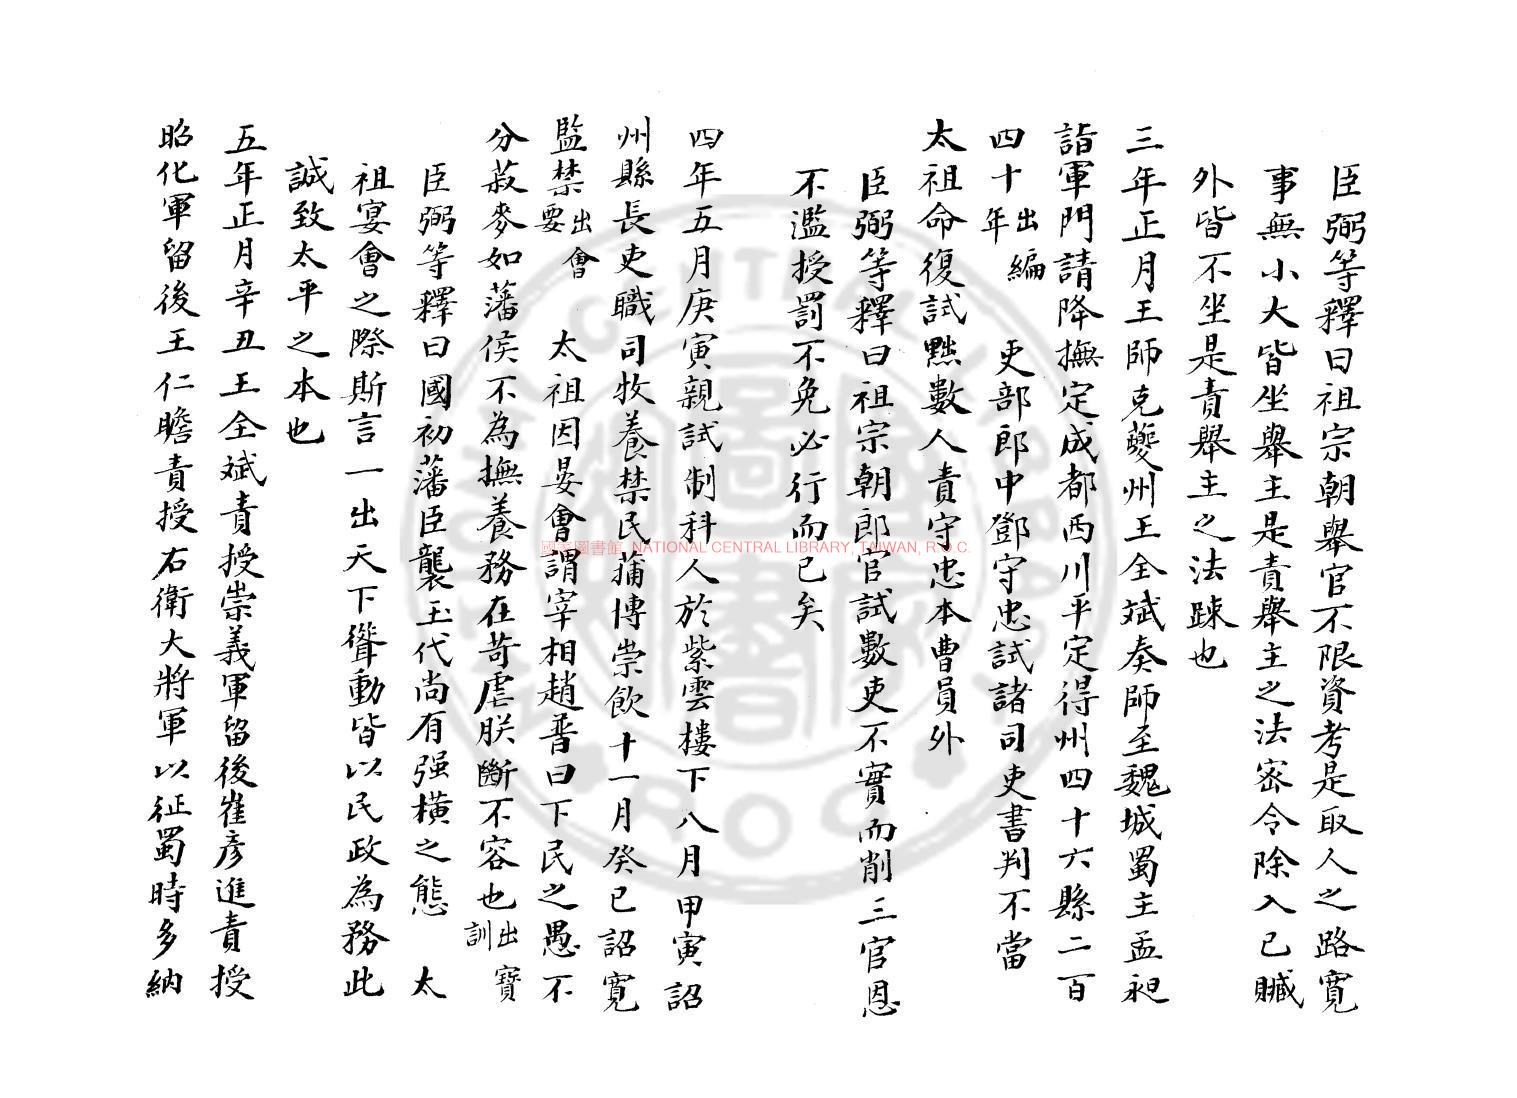 臣弼等釋曰祖宗朝舉官不限資考是取人之路寬
事無小大皆坐舉主是責舉主之法密今除入己贓
外皆不坐是責舉主之法踈也
三年正月王師克夔州王全斌奏師至魏城蜀主孟昶
詣軍門請降撫定成都西川平定得州四十六縣二百
四十出編年 吏部郎中鄧守忠試諸司吏書判不當
太祖命復試黜數人責守忠本曹員外
臣弼等釋曰祖宗朝郎官試數吏不實而削三官恩
不濫授罰不免必行而已矣
四年五月庚寅親試制科人於紫雲樓下八月甲寅詔
州縣長吏職司牧養禁民蒱博崇飲十一月癸巳詔寬
監禁出會要 太祖因晏會謂宰相趙普曰下民之愚不
分菽麥如藩侯不為撫養務在苛虐朕斷不容也出寶訓
臣弼等釋曰國初藩臣襲五代尚有强橫之態 太
祖宴會之際斯言一出天下聳動皆以民政為務此
誠致太平之本也
五年正月辛丑王全斌責授崇義軍留後崔彥進責授
昭化軍留後王仁贍責授右衛大將軍以征蜀時多納
國家圖書館 NATIONAL CENTRAL LIBRARY, TAIWAN, R.O.C.